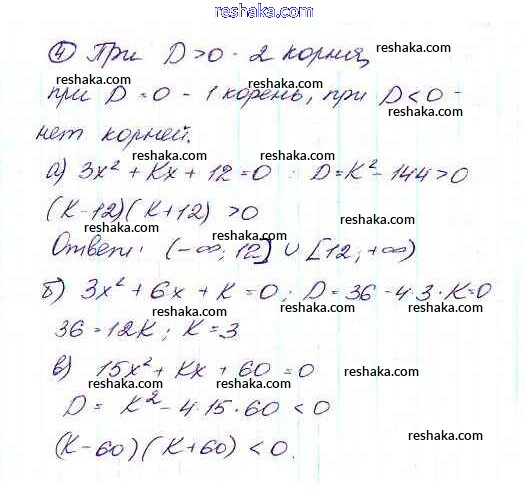 reshaka.com
④ При D>0 - 2 корня, reshaka.com
reshaka.com
при D = 0 - 1 корень, при D<0 -
reshaka.com
нет корней.
reshaka.com reshaka.com
а) 3x² + Kx + 12 = 0 : D = K² - 144 > 0
reshaka.com
(K-12)(K+12) > 0
reshaka.com reshaka.com
Ответ: (-∞; 12] ∪ [12; +∞)
reshaka.com
б) 3x² + 6x + K = 0; D = 36 - 4·3·K = 0
reshaka.com reshaka.com
36 = 12K; K = 3
reshaka.com
в) 15x² + Kx + 60 = 0
reshaka.com reshaka.com
D = K² - 4·15·60 < 0
reshaka.com
(K-60)(K+60) < 0.
reshaka.com
reshaka.com